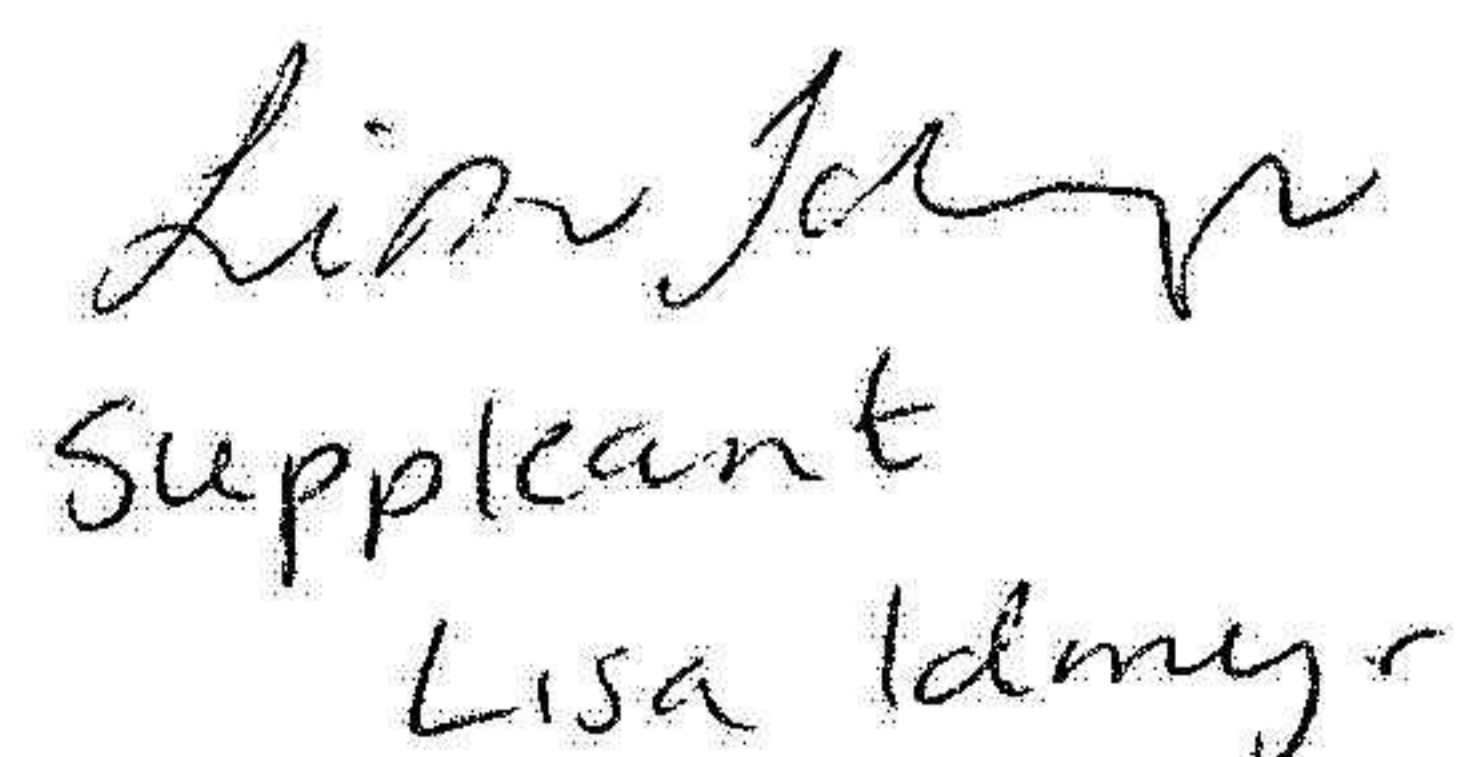 Lisa Idmyr
Suppleant
Lisa Idmyr